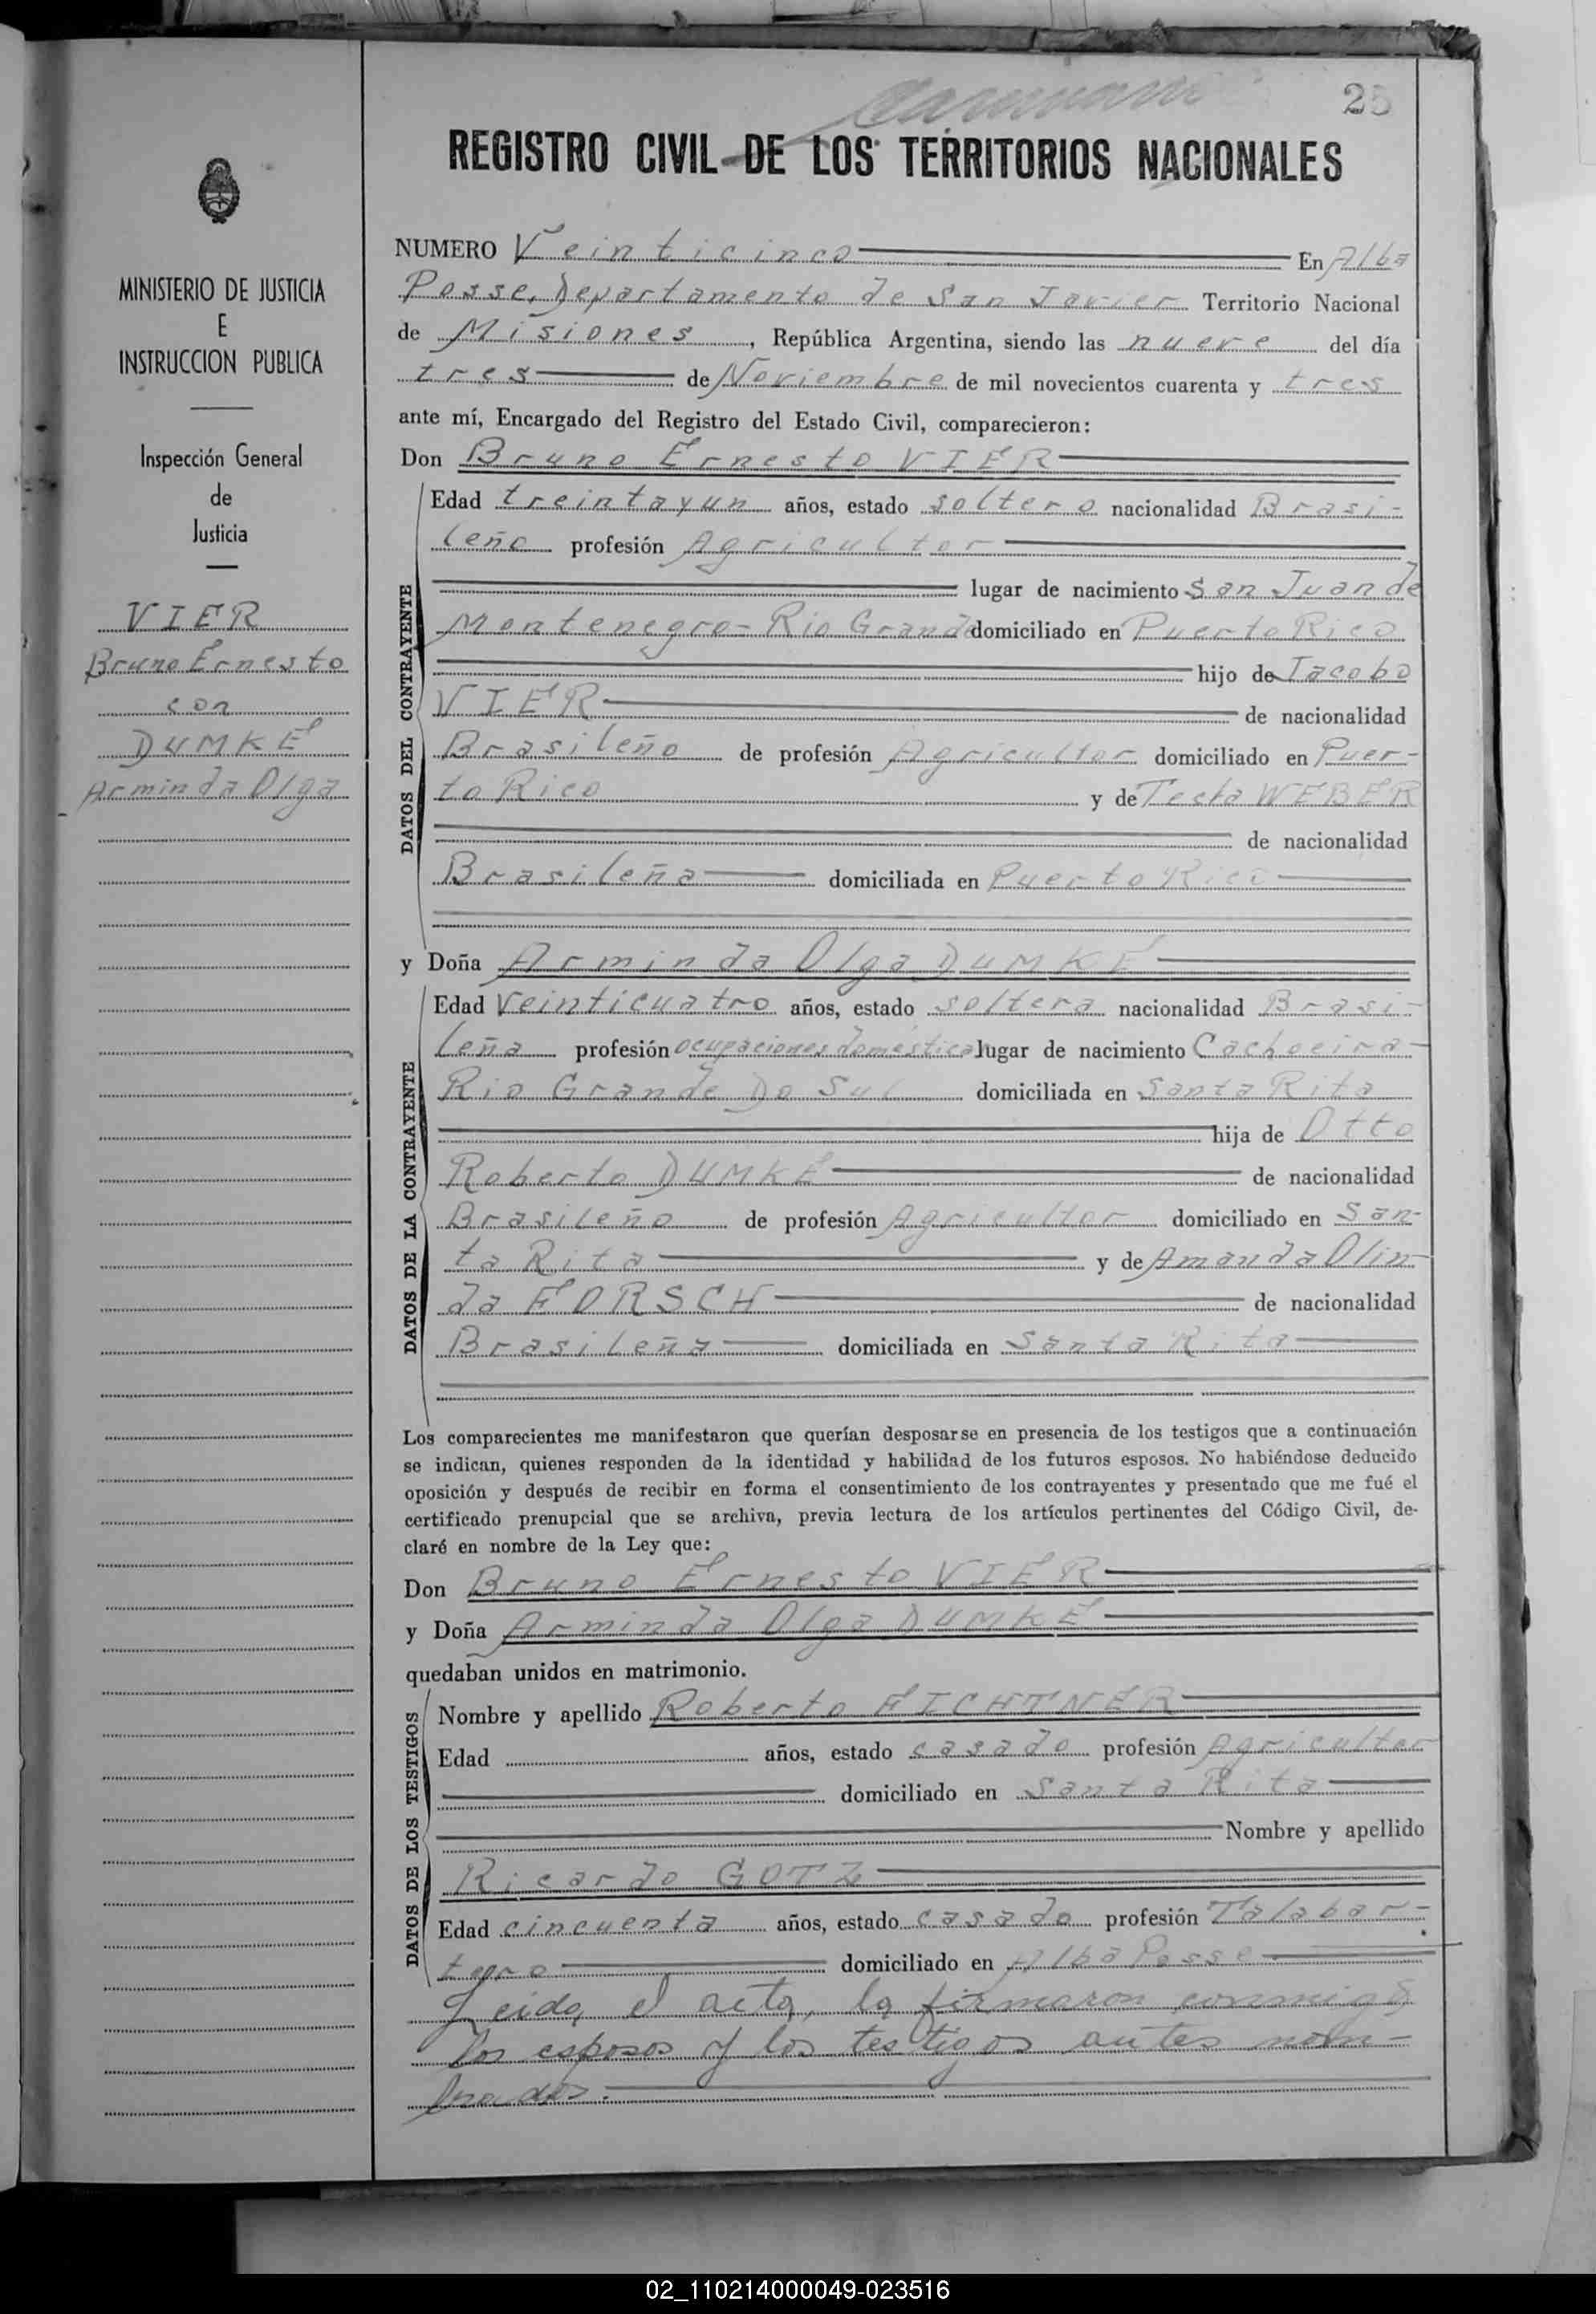 25
REGISTRO CIVIL DE LOS TERRITORIOS NACIONALES
MINISTERIO DE JUSTICIA
E
INSTRUCCION PUBLICA
Inspección General
de
Justicia
VIER
Bruno Ernesto
con
DUMKE
Arminda Olga
NUMERO Veinticinco En Alba
Posse, Departamento de San Javier Territorio Nacional
de Misiones, República Argentina, siendo las nueve del día
tres de Noviembre de mil novecientos cuarenta y tres
ante mí, Encargado del Registro del Estado Civil, comparecieron:
Don Bruno Ernesto VIER
DATOS DEL CONTRAYENTE
Edad treinta y un años, estado soltero nacionalidad Brasi-
leño profesión Agricultor
lugar de nacimiento San Juan de
Montenegro - Rio Grande domiciliado en Puerto Rico
hijo de Jacobo
VIER de nacionalidad
Brasileño de profesión Agricultor domiciliado en Puer-
to Rico y de WEBER
de nacionalidad
Brasileña domiciliada en Puerto Rico
y Doña Arminda Olga DUMKE
DATOS DE LA CONTRAYENTE
Edad Veinticuatro años, estado soltera nacionalidad Brasi-
leña profesión ocupaciones domésticas lugar de nacimiento Cachoeira-
Rio Grande Do Sul domiciliada en Santa Rita
hija de Otto
Roberto DUMKE de nacionalidad
Brasileño de profesión Agricultor domiciliado en San-
ta Rita y de Amanda Olin-
da FORSCH de nacionalidad
Brasileña domiciliada en Santa Rita
Los comparecientes me manifestaron que querían desposarse en presencia de los testigos que a continuación
se indican, quienes responden de la identidad y habilidad de los futuros esposos. No habiéndose deducido
oposición y después de recibir en forma el consentimiento de los contrayentes y presentado que me fué el
certificado prenupcial que se archiva, previa lectura de los artículos pertinentes del Código Civil, de-
claré en nombre de la Ley que:
Don Bruno Ernesto VIER
y Doña Arminda Olga DUMKE
quedaban unidos en matrimonio.
DATOS DE LOS TESTIGOS
Nombre y apellido Roberto FICHTNER
Edad años, estado casado profesión Agricultor
domiciliado en Santa Rita
Nombre y apellido
Ricardo GOTZ
Edad cincuenta años, estado casado profesión Talabar-
tero domiciliado en Alba Posse
Leida el acta, la firmaron conmigo
los esposos y los testigos antes nom-
brados.
02_110214000049-023516